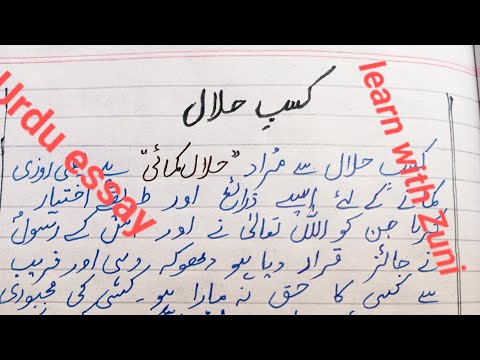 کسبِ حلال
کسبِ حلال سے مُراد "حلال کمائی" ہے یعنی روزی
کمانے کے لئے ایسے ذرائع اور طریقے اختیار
کرنا جن کو اللہ تعالیٰ نے اور اس کے رسولُ
نے جائز قرار دیا ہو دھوکہ دہی اور فریب
سے کسی کا حق نہ مارا ہو۔ کسی کی مجبوری
Urdu essay
learn with Zuni